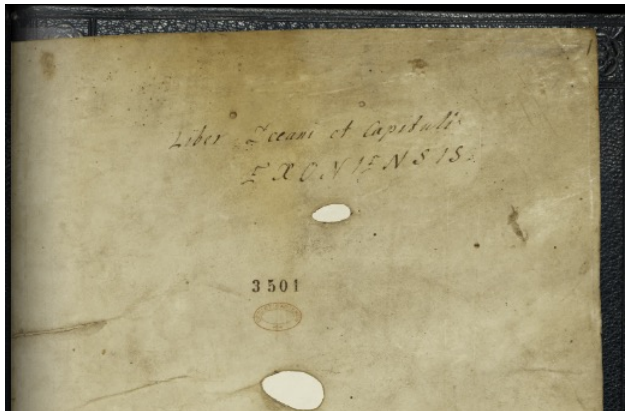 Liber Decani et Capituli
EXONIENSIS.
3501